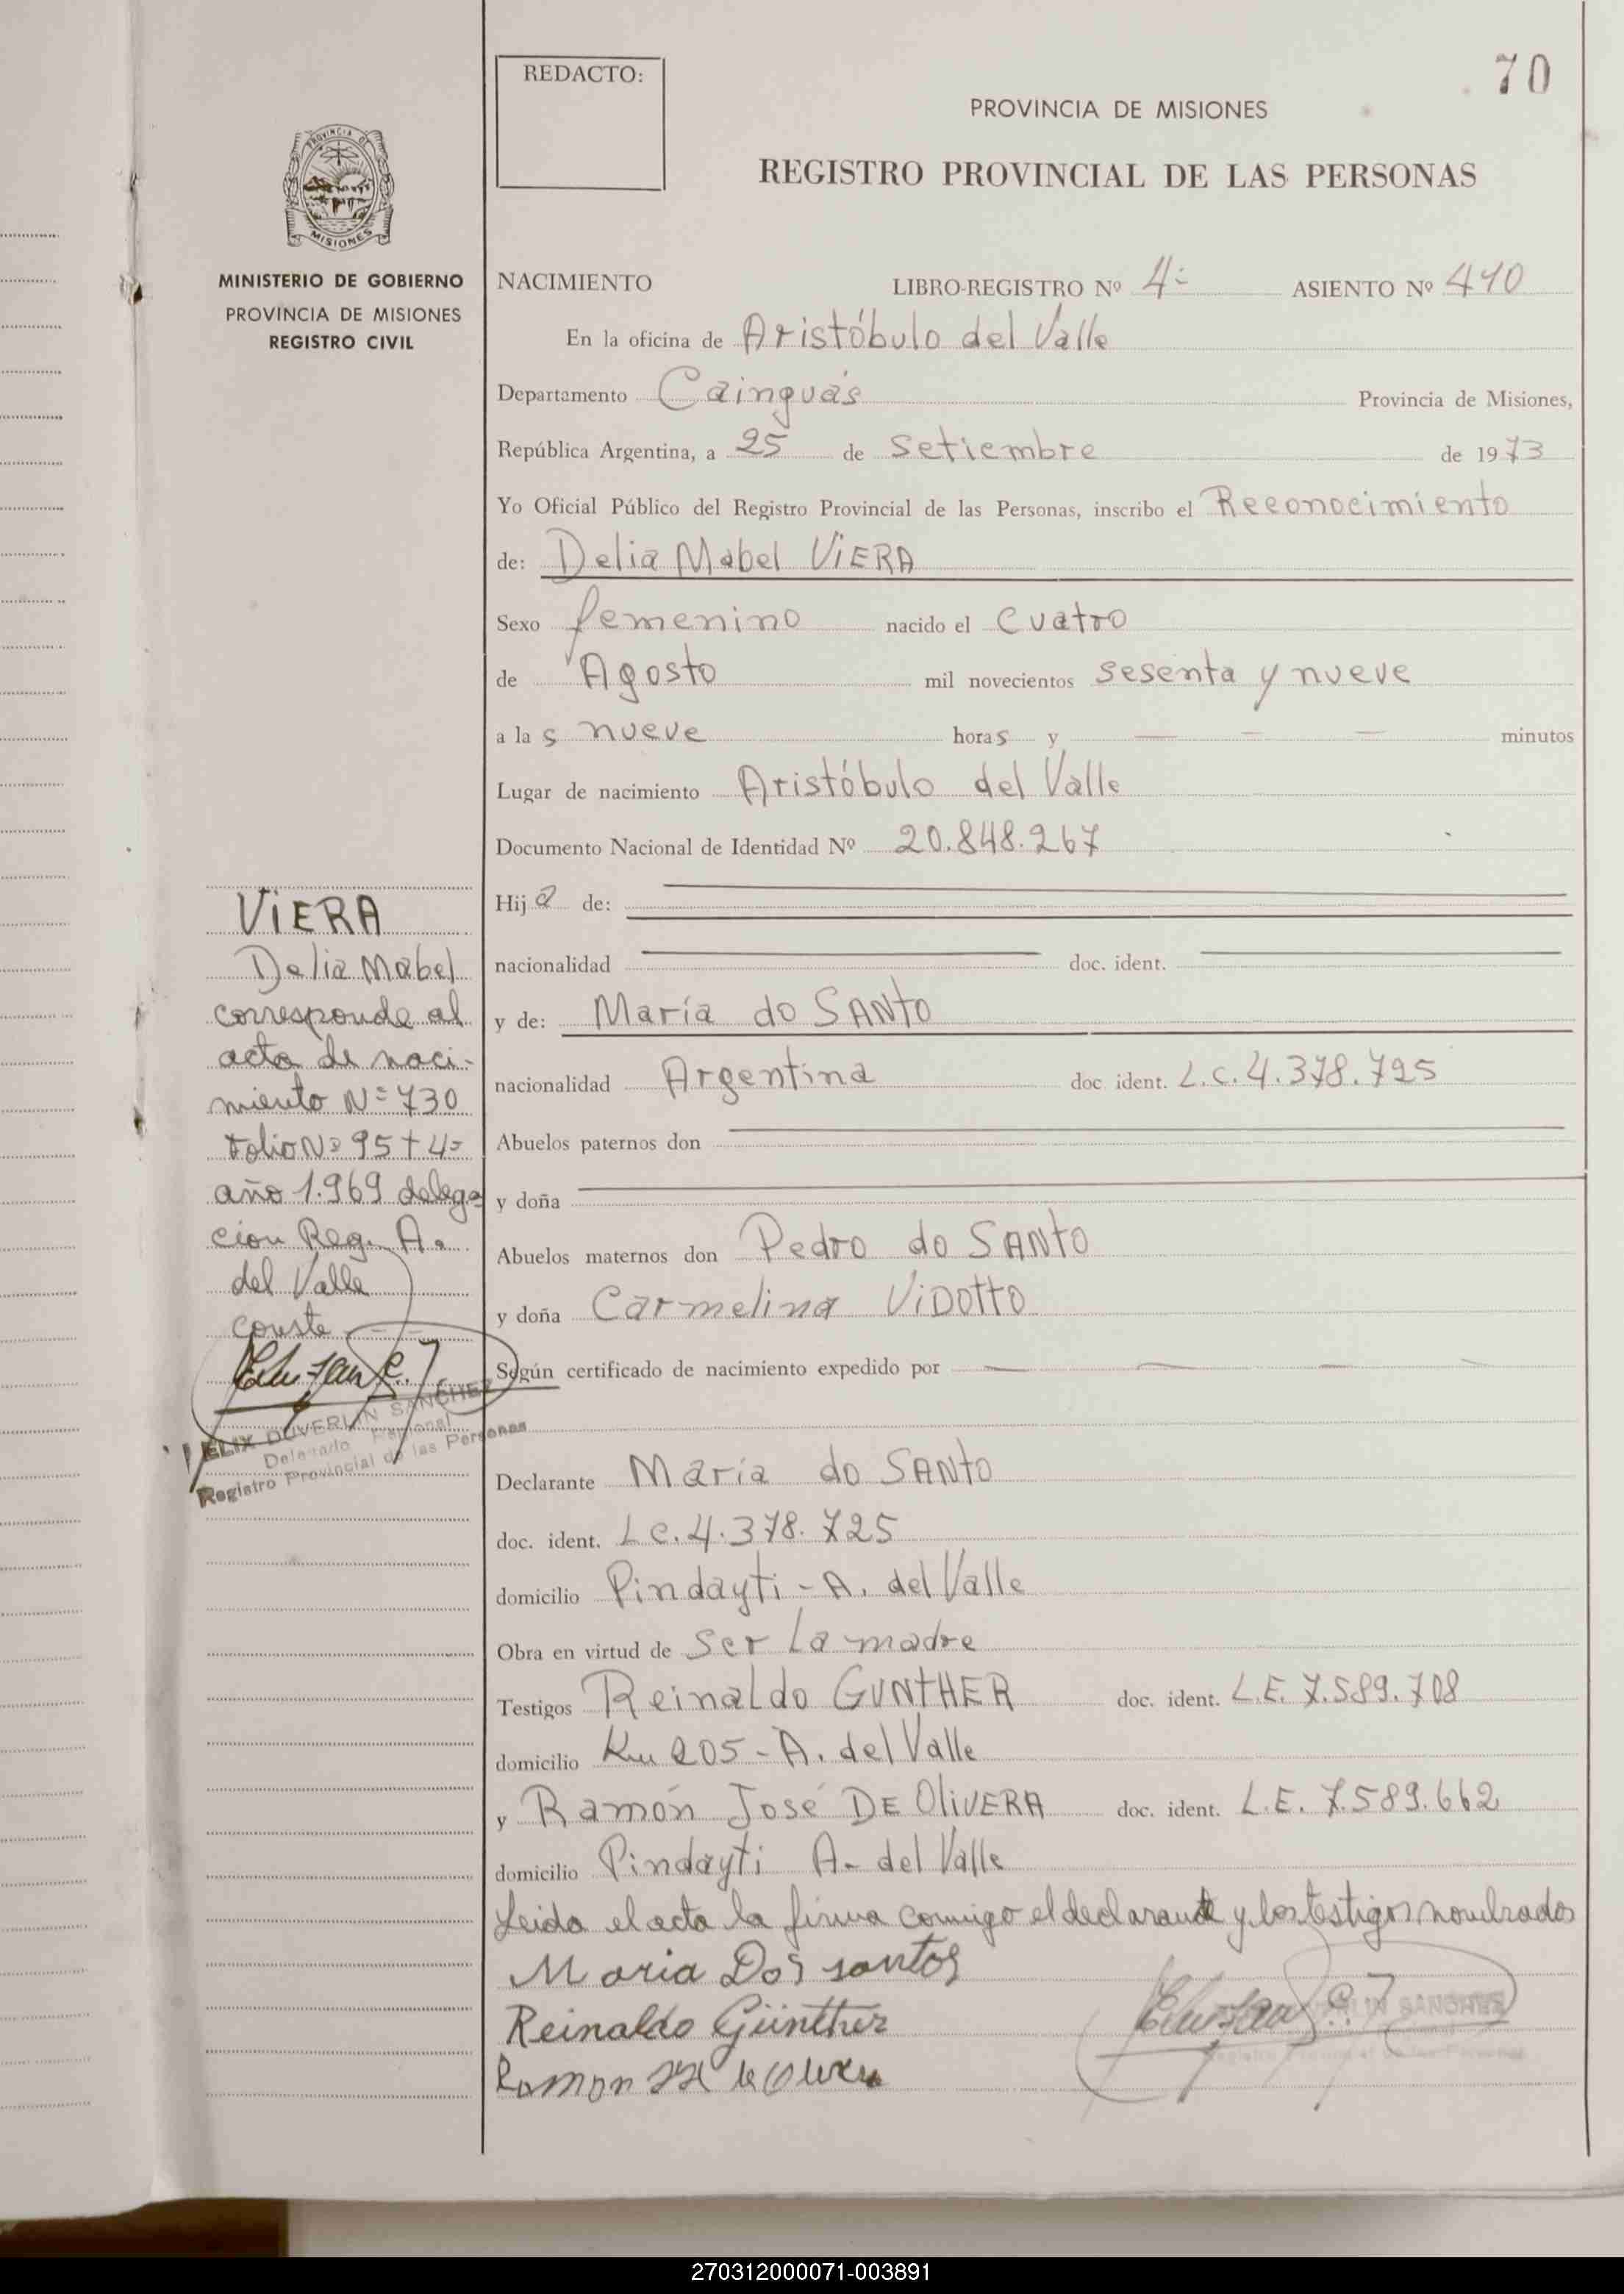 70
REDACTO:
PROVINCIA DE MISIONES
REGISTRO PROVINCIAL DE LAS PERSONAS
PROVINCIA DE
MISIONES
MINISTERIO DE GOBIERNO
PROVINCIA DE MISIONES
REGISTRO CIVIL
NACIMIENTO LIBRO-REGISTRO Nº 4= ASIENTO Nº 410
En la oficina de Aristóbulo del Valle
Departamento Cainguás Provincia de Misiones,
República Argentina, a 25 de Setiembre de 1973
Yo Oficial Público del Registro Provincial de las Personas, inscribo el Reconocimiento
de: Delia Mabel VIERA
Sexo femenino nacido el Cuatro
de Agosto mil novecientos sesenta y nueve
a las nueve horas y — — — minutos
Lugar de nacimiento Aristóbulo del Valle
Documento Nacional de Identidad Nº 20.848.267
Hija de:
nacionalidad doc. ident.
y de: María do SANTO
nacionalidad Argentina doc. ident. L.C. 4.378.725
Abuelos paternos don
y doña
Abuelos maternos don Pedro do SANTO
y doña Carmelina ViDOTTO
Según certificado de nacimiento expedido por — — — —
Declarante María do SANTO
doc. ident. L C. 4.378.725
domicilio Pindayti - A. del Valle
Obra en virtud de Ser La madre
Testigos Reinaldo GUNTHER doc. ident. L.E. 7.589.708
domicilio Km 205 - A. del Valle
y Ramón José DE OLIVERA doc. ident. L.E. 7.589.662
domicilio Pindayti A- del Valle
Leida el acta la firma conmigo el declarante y los testigos nombrados
Maria Dos santos
Reinaldo Günther
Ramon
VIERA
Delia Mabel
corresponde al
acta de naci-
miento Nº 730
Folio Nº 95 t 4=
año 1.969 delega
cion Reg. A.
del Valle
conste
FELIX DUVERLIN SANCHEZ
Delegado Regional
Registro Provincial de las Personas
270312000071-003891